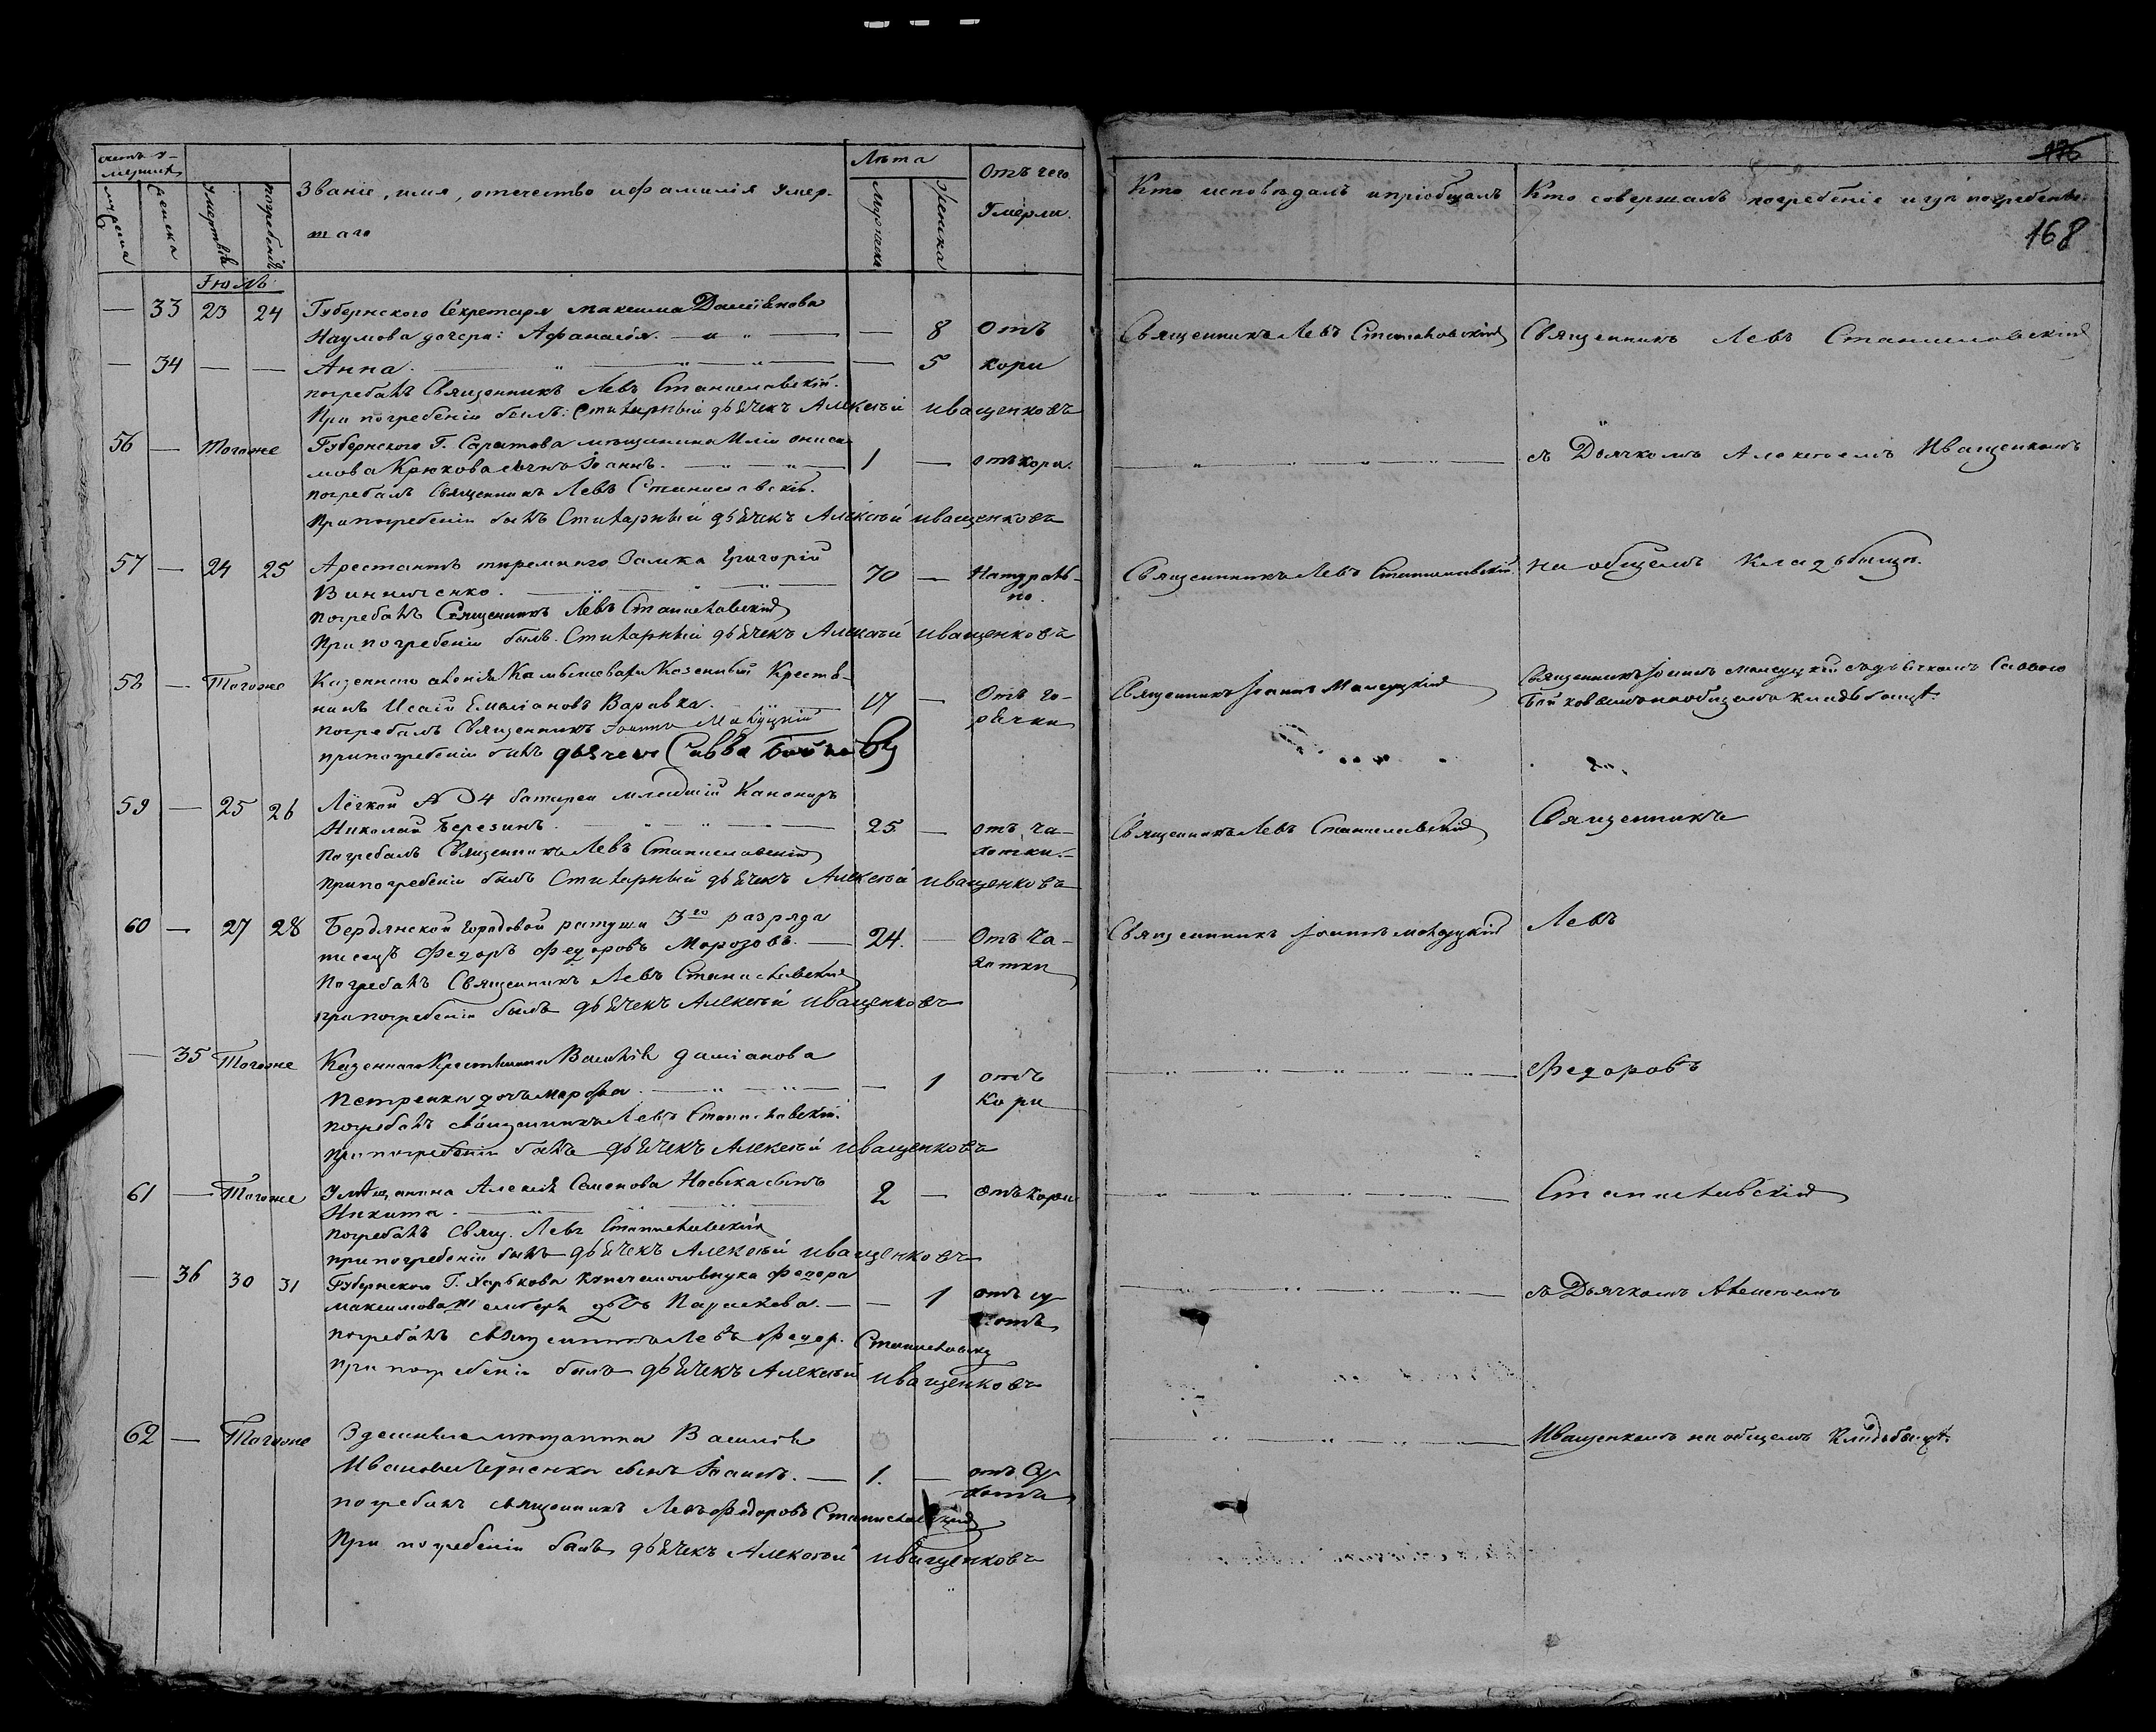 счетъ у-
мершихъ
мужеска
женска
умертвія
погребенія
Званіе, имя, отечество и фамилія умер-
шаго
Лѣта
Мужеска
Женска
Отъ чего
Умерли.
Кто исповѣдалъ и пріобщалъ
Кто совершалъ погребеніе и гдѣ погребены
168
Іюль
— 33 23 24 Губернского Секретаря Максима
Наумова дочери: Афанасія. — 8 отъ
Священникъ Левъ Станиславскій Священникъ Левъ Станиславскій
— 34 — — Анна. — 5 кори
погребалъ Священникъ Левъ Станиславскій.
При погребеніи былъ: Стихарный дьячекъ Алексѣй Иващенковъ
56 — Тогоже Губернского Г. Саратова мѣщанина Иліи Ониси-
мова Крюкова сынъ Іоаннъ. 1 — отъ кори.
съ Дьячкомъ Алексѣемъ Иващенкомъ
погребалъ Священникъ Левъ Станиславскій.
При погребеніи былъ Стихарный дьячекъ Алексѣй Иващенковъ
57 — 24 25 Арестантъ тюремного Замка Григорій
Винниченко. 70 — Натураль-
но.
Священникъ Левъ Станиславскій. на общемъ кладьбищѣ.
погребалъ Священникъ Левъ Станиславскій
При погребеніи былъ Стихарный дьячекъ Алексѣй Иващенковъ
58 — Тогоже Казенного селенія Камышеваги Казенный Крестья-
нинъ Исаій Емеліановъ Варавка. 17 — Отъ го-
рячки
Священникъ Іоаннъ Малуцкій
Священникъ Іоаннъ Малуцкій съ дьячкомъ Саввою
Бойковымъ на общемъ кладьбищѣ.
погребалъ Священникъ Іоаннъ Малуцкій
при погребеніи былъ дьячекъ Савва Бойковъ
59 — 25 26 Лёгкой № 4 батареи младшій Канониръ
Николай Березинъ. 25 — отъ ча-
хотки.
Священникъ Левъ Станиславскій Священникъ
Погребалъ Священникъ Левъ Станиславскій
При погребеніи былъ Стихарный дьячекъ Алексѣй Иващенковъ
60 — 27 28 Бердянской Городовой ратуши 3го разряда
писецъ Федоръ Федоровъ Морозовъ. — 24. — Отъ Ча-
хотки
Священникъ Іоаннъ Малуцкій Левъ
Погребалъ Священникъ Левъ Станиславскій
при погребеніи былъ дьячекъ Алексѣй Иващенковъ
— 35 Тогоже Казенного Крестьянина Василія Даміанова
Петренки дочь Марфа. — 1 отъ
Кори
Федоровъ
погребалъ священникъ Левъ Станиславскій.
При погребеніи былъ дьячекъ Алексѣй Иващенковъ
61 — Тогоже У мѣщанина Алексія Семенова Носика сынъ
Никита. 2 — отъ кори
Станиславскій
погребалъ Свящ. Левъ Станиславскій
при погребеніи былъ дьячекъ Алексѣй Иващенковъ
— 36 30 31 Губернскаго Г. Харькова купеческаго внука Федора
Максимова дочь Параскева. — — 1 отъ су-
хотъ
съ Дьячкомъ Алексѣемъ
погребалъ священникъ Левъ Федор. Станиславскій
при погребеніи былъ дьячекъ Алексѣй Иващенковъ
62 — Тогоже Здешняго мѣщанина Василія
Иванова Черненка сынъ Іоаннъ. — 1. — отъ Су-
хотъ
Иващенкомъ на общемъ Кладьбищѣ.
погребалъ священникъ Левъ Федоровъ Станиславскій
При погребеніи былъ дьячекъ Алексѣй Иващенковъ